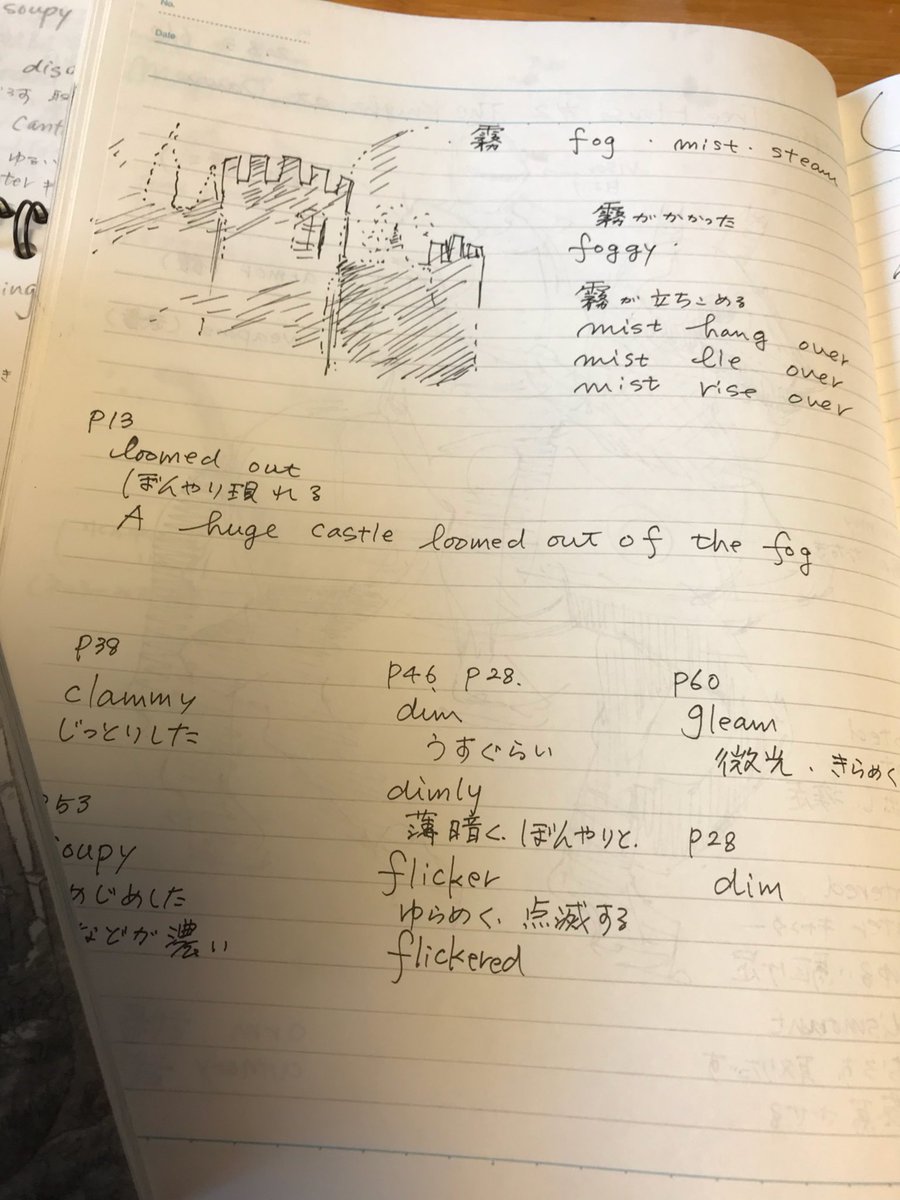 No.
Date
soupy
霧 fog ・ mist ・ steam
霧がかかった
foggy ・
霧が立ちこめる
mist hang over
mist lie over
mist rise over
P13
loomed out
ぼんやり現れる
A huge castle loomed out of the fog
P38
clammy
じっとりした
53
soupy
めじめした
などが濃い
P46 P28.
dim
うすぐらい
dimly
薄暗く、ぼんやりと.
flicker
ゆらめく、点滅する
flickered
P60
gleam
微光、きらめく
P28
dim